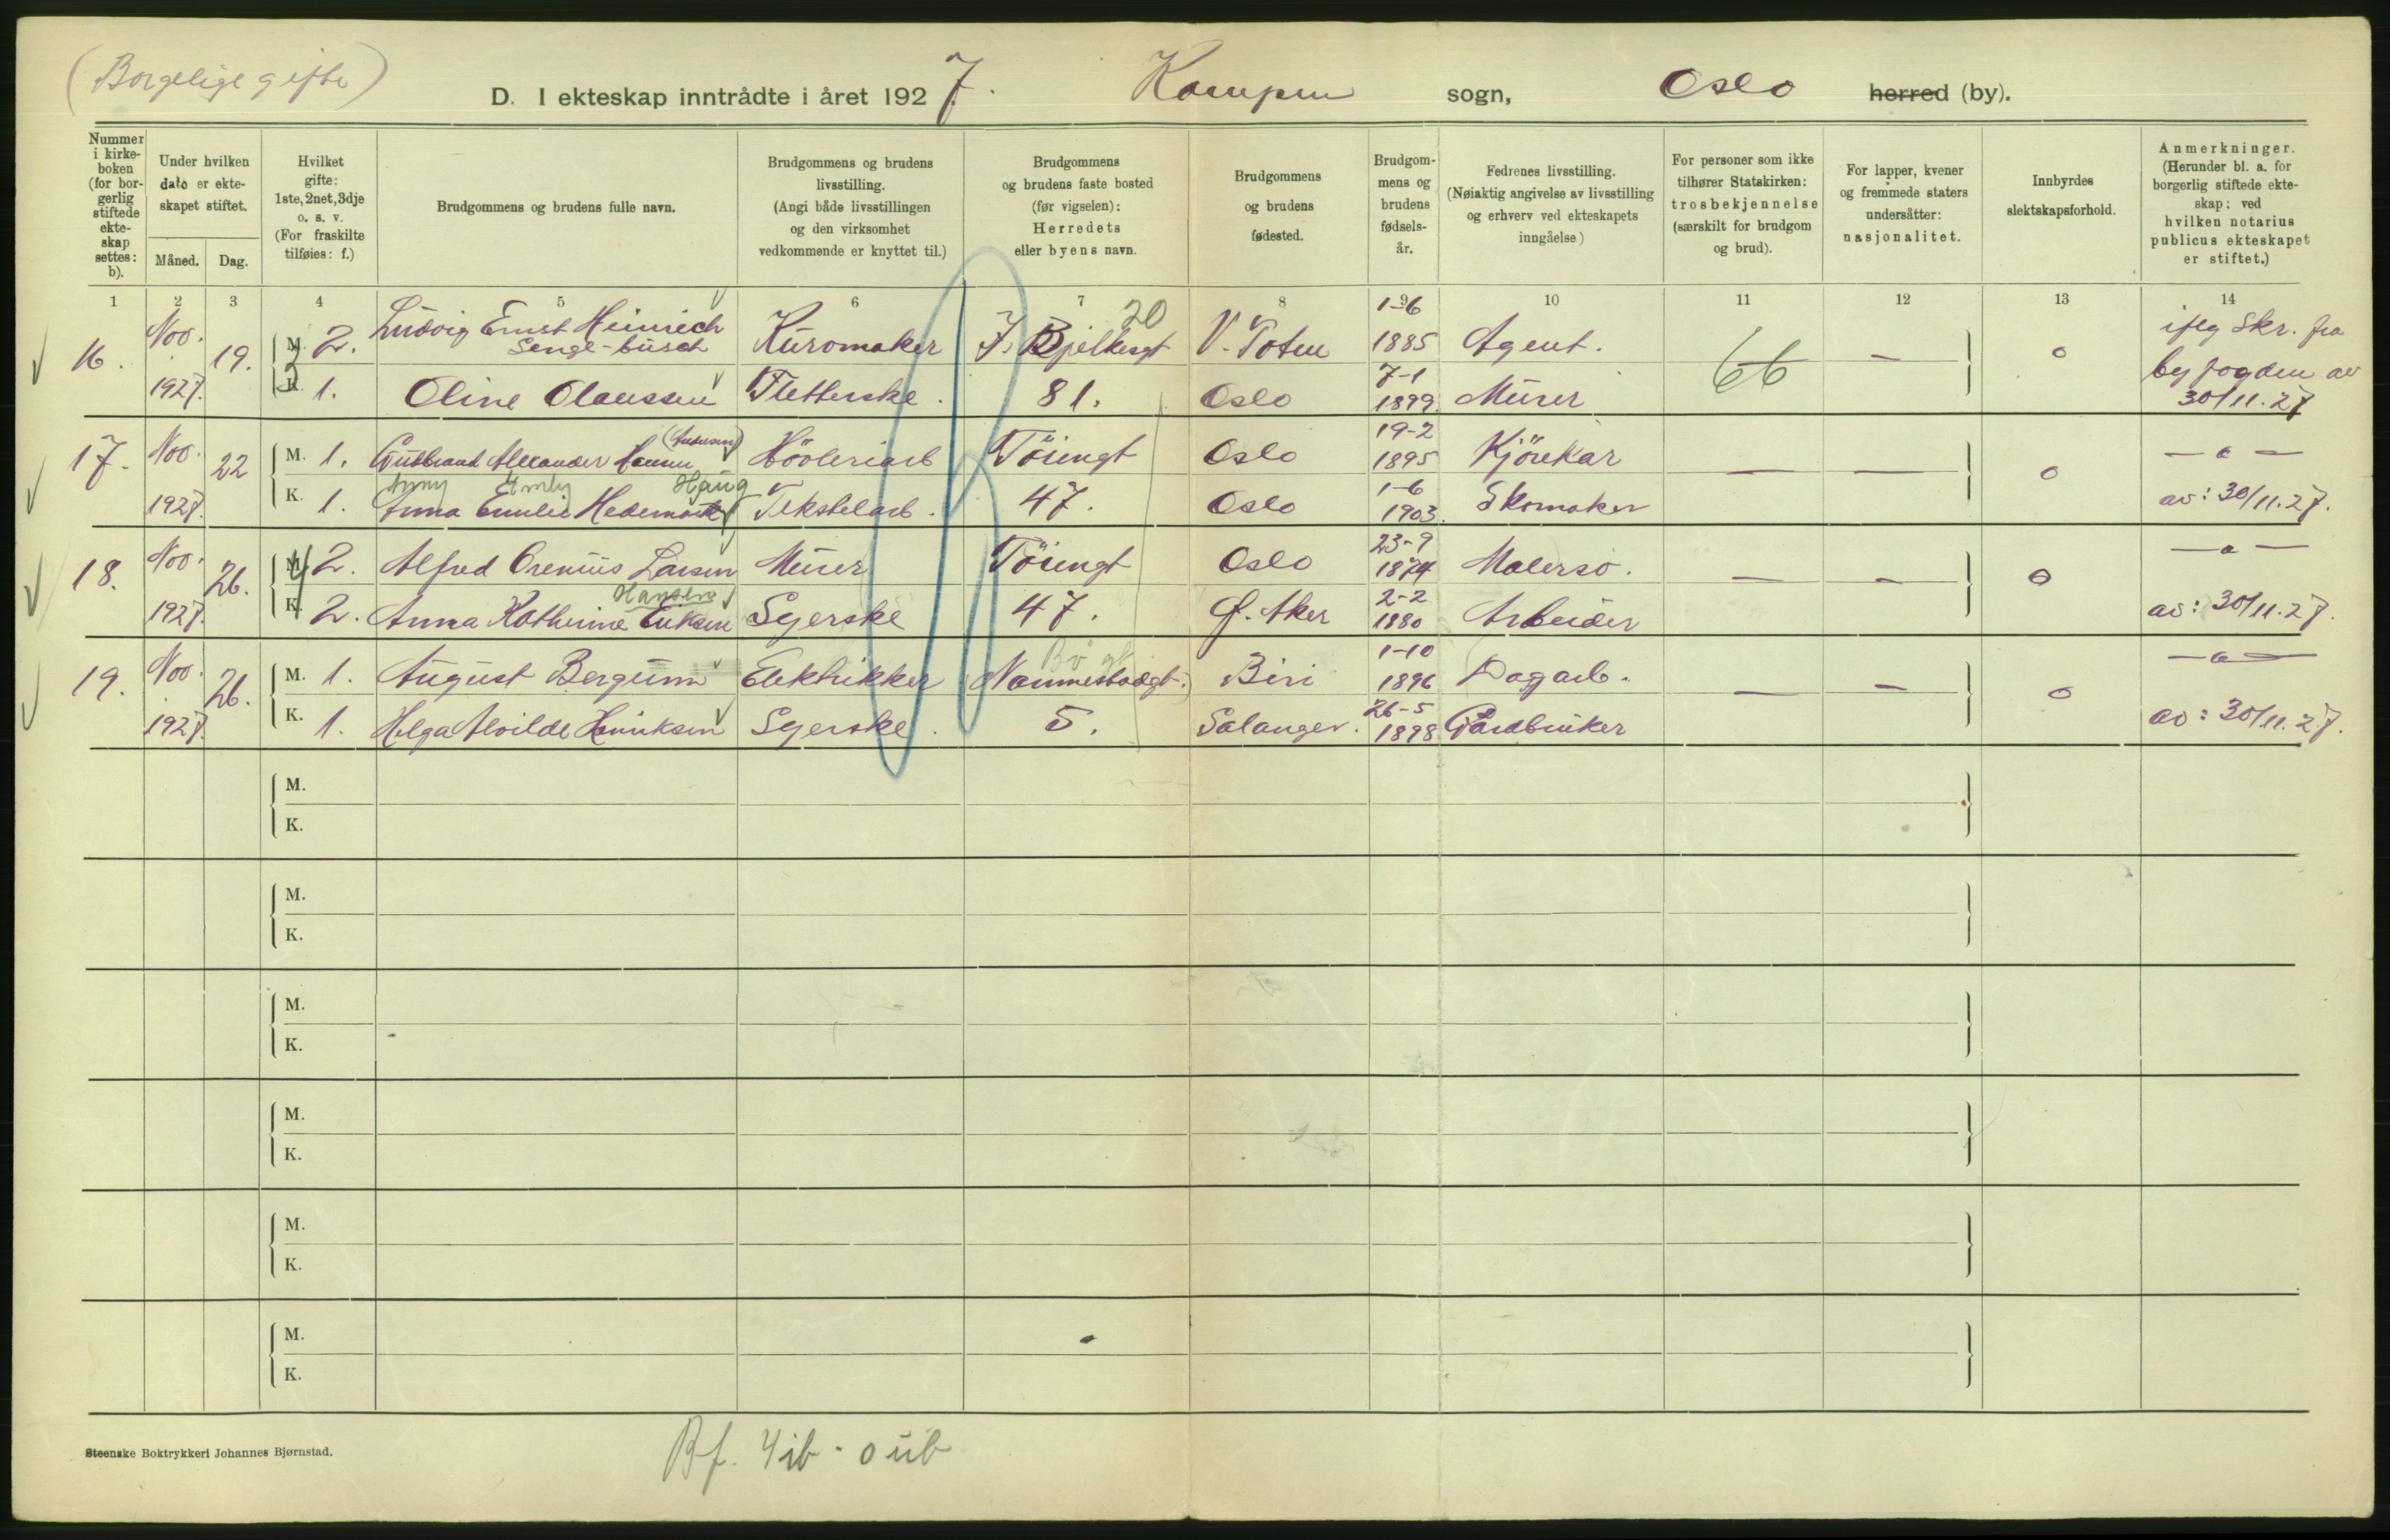 (Borgelige gifte)
D. I ekteskap inntrådte i året 1927. Kampen sogn, Oslo herred (by).
Nummer i kirkeboken (for borgerlig stiftede ekteskap settes: b).
Under hvilken dato er ekteskapet stiftet.
Måned. Dag.
Hvilket gifte: 1ste, 2net, 3dje o. s. v. (For fraskilte tilføies: f.)
Brudgommens og brudens fulle navn.
Brudgommens og brudens livsstilling. (Angi både livsstillingen og den virksomhet vedkommende er knyttet til.)
Brudgommens og brudens faste bosted (før vigselen): Herredets eller byens navn.
Brudgommens og brudens fødested.
Brudgommens og brudens fødselsår.
Fedrenes livsstilling. (Nøiaktig angivelse av livsstilling og erhverv ved ekteskapets inngåelse)
For personer som ikke tilhører Statskirken: trosbekjennelse (særskilt for brudgom og brud).
For lapper, kvener og fremmede staters undersåtter: nasjonalitet.
Innbyrdes slektskapsforhold.
Anmerkninger. (Herunder bl. a. for borgerlig stiftede ekteskap: ved hvilken notarius publicus ekteskapet er stiftet.)
1 2 3 4 5 6 7 8 9 10 11 12 13 14
16. Nov. 1927. 19. M. 2. Ludvig Ernst Heinrich Senge-busch Kurvmaker J. Bjelkesgt 20 V. Toten 1-6 1885 Agent. 66 — 0 iflg skr. fra
K. 1. Oline Olaussen Fletterske. 81. Oslo 7-1 1899 Murer byfogden av 30/11.27
17. Nov. 1927. 22 M. 1. Gudbrand Alexander Hansen (Andersen) Høvleriarb Töiengt Oslo 19-2 1895 Kjörekar — — 0 — " —
Anny Emly Haug
K. 1. Anna Emilie Hedemark Tekstilarb. 47. Oslo 1-6 1903. Skomaker av: 30/11.27.
18. Nov. 1927. 26. M. 2. Alfred Orenius Larsen Murer Töiengt Oslo 23-9 1874 Malersv. — — 0 — " —
Hansen
K. 2. Anna Kathrine Eriksen Syerske 47. Ø. Aker 2-2 1880 Arbeider av: 30/11.27.
19. Nov. 1927. 26. M. 1. August Bergum Elektrikker Nannestadgt. Biri 1-10 1896 Dagarb. — — 0 — " —
K. 1. Helga Alvilde Henriksen Syerske. 5. Salangen. 26-5 1898 Gårdbruker av: 30/11.27.
M.
K.
M.
K.
M.
K.
M.
K.
M.
K.
M.
K.
Steenske Boktrykkeri Johannes Bjørnstad.
Bf. 4 ib - 0 ub